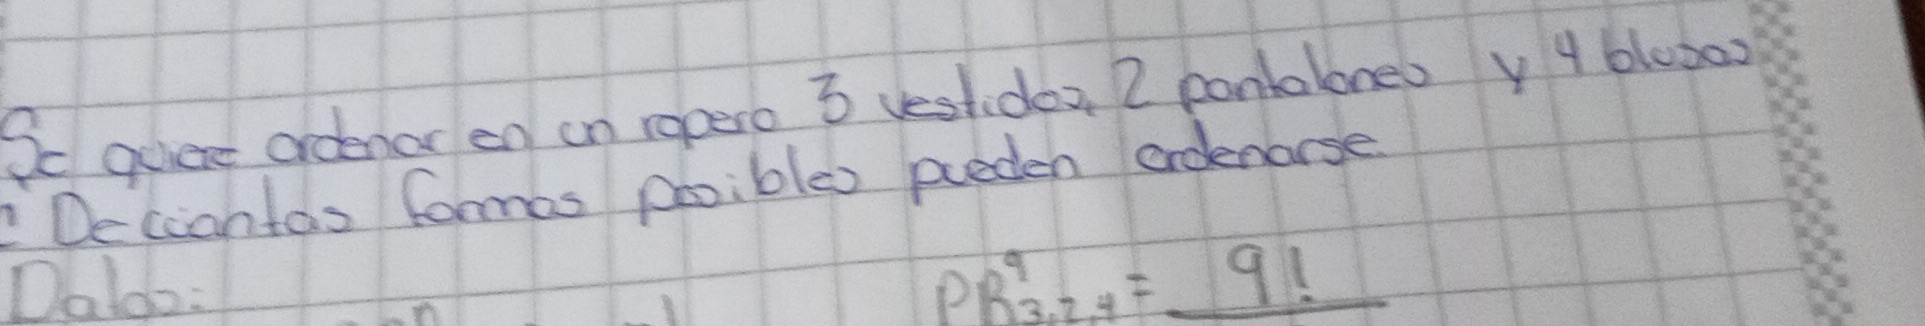 Se quiere ordenar en un ropero 3 vestidos, 2 pantalones y 4 blusas
¿De cuantas formas posibles pueden ordenarse
Datos:
PR⁹₃,₂,₄ = 9!